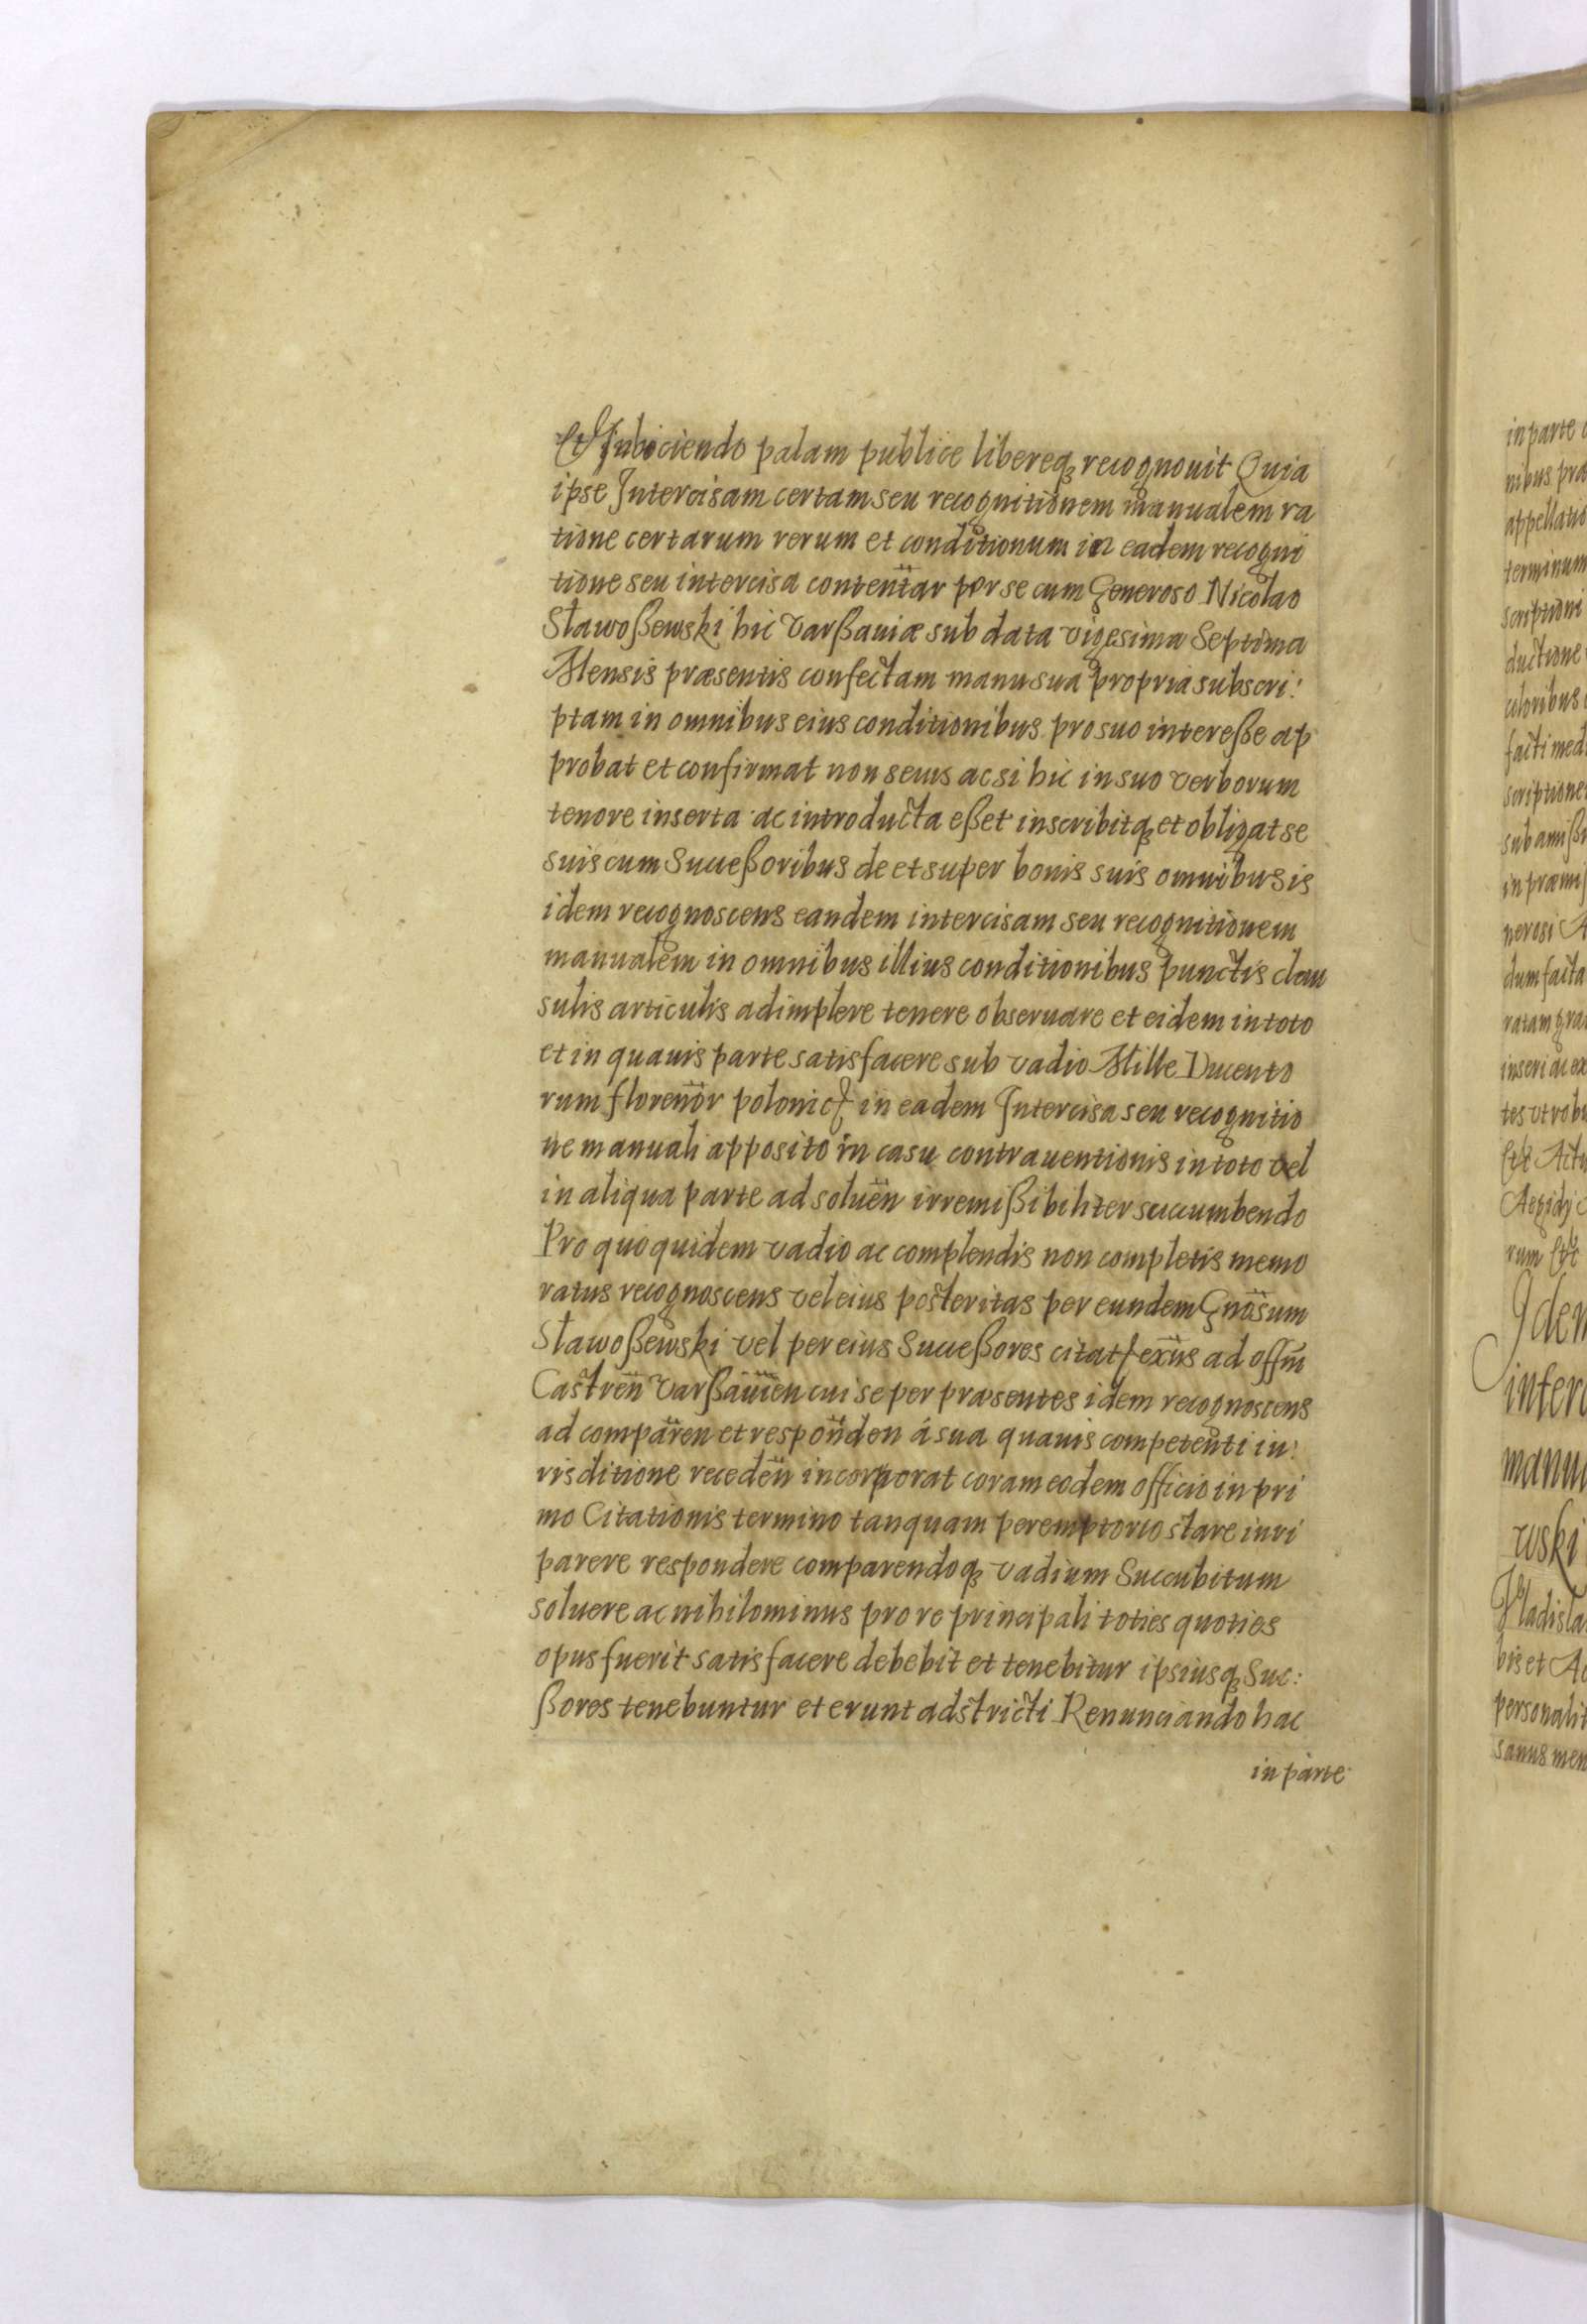 Et subiiciendo palam publice libereq recognouit Quia
ipse Intercisam certam seu recognitionem manualem ra
tione certarum rerum et conditionum in eadem recogni
tione seu intercisa contentar per se cum Generoso Nicolao
Sławoßewski hic Varßauiæ sub data vigesima Septima
Mensis præsentis confectam manu sua propria subscri:
ptam in omnibus eius conditionibus pro suo intereße ap
probat et confirmat non secus ac si hic in suo verborum
tenore inserta ac introducta eßet inscribitq et obligat se
suis cum Succeßoribus de et super bonis suis omnibus is
idem recognoscens eandem intercisam seu recognitionem
manualem in omnibus illius conditionibus punctis clau
sulis articulis adimplere tenere obseruare et eidem in toto
et in quauis parte satisfacere sub vadio Mille Ducento
rum florenor polonic in eadem Intercisa seu recognitio
ne manuali apposito in casu contrauentionis in toto vel
in aliqua parte ad soluen irremißibiliter succumbendo
Pro quo quidem vadio ac complendis non completis memo
ratus recognoscens vel eius posteritas per eundem Gnosum
Sławoßewski vel per eius Succeßores citat exñs ad offm
Castren Varßauien cui se per præsentes idem recognoscens
ad comparen et responden á sua quauis competenti iu:
risditione receden incorporat coram eodem officio in pri
mo Citationis termino tanquam peremptorio stare iuri
parere respondere comparendoq vadium Succubitum
soluere ac nihilominus pro re principali toties quoties
opus fuerit satisfacere debebit et tenebitur ipsiusq Suc:
ßores tenebuntur et erunt adstricti Renunciando hac
in parte
in parte
nibus præ
appellatio
terminum
scriptioni
ductione
coloribus
facti med
scriptione
sub amißi
in præmiß
nerosi
dum facta
ratam gra
inseri ac ex
tes vtrobi
Ett Actu
Aegidij
rum Ett
Idem
interc
manu
wski
Vladisla
bis et Ac
personalit
sanus men